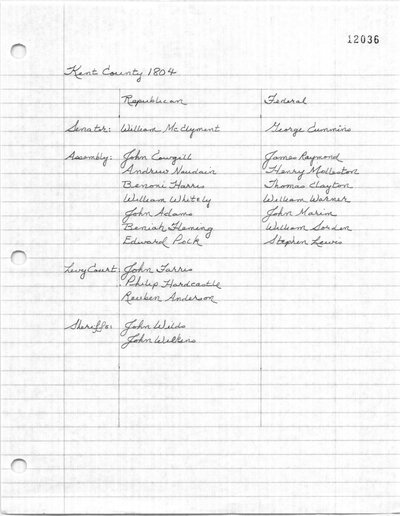 12036
Kent County 1804
Republican Federal
Senator: William McClyment George Cummins
Assembly: John Cowgill James Raymond
Andrew Naudain Henry Molleston
Benoni Harris Thomas Clayton
William Whitely William Warner
John Adams John Marim
Beniah Fleming William Sorden
Edward Polk Stephen Lewis
Levy Court: John Farris
Philip Hardcastle
Reuben Anderson
Sheriffs: John Wilds
John Wilkens